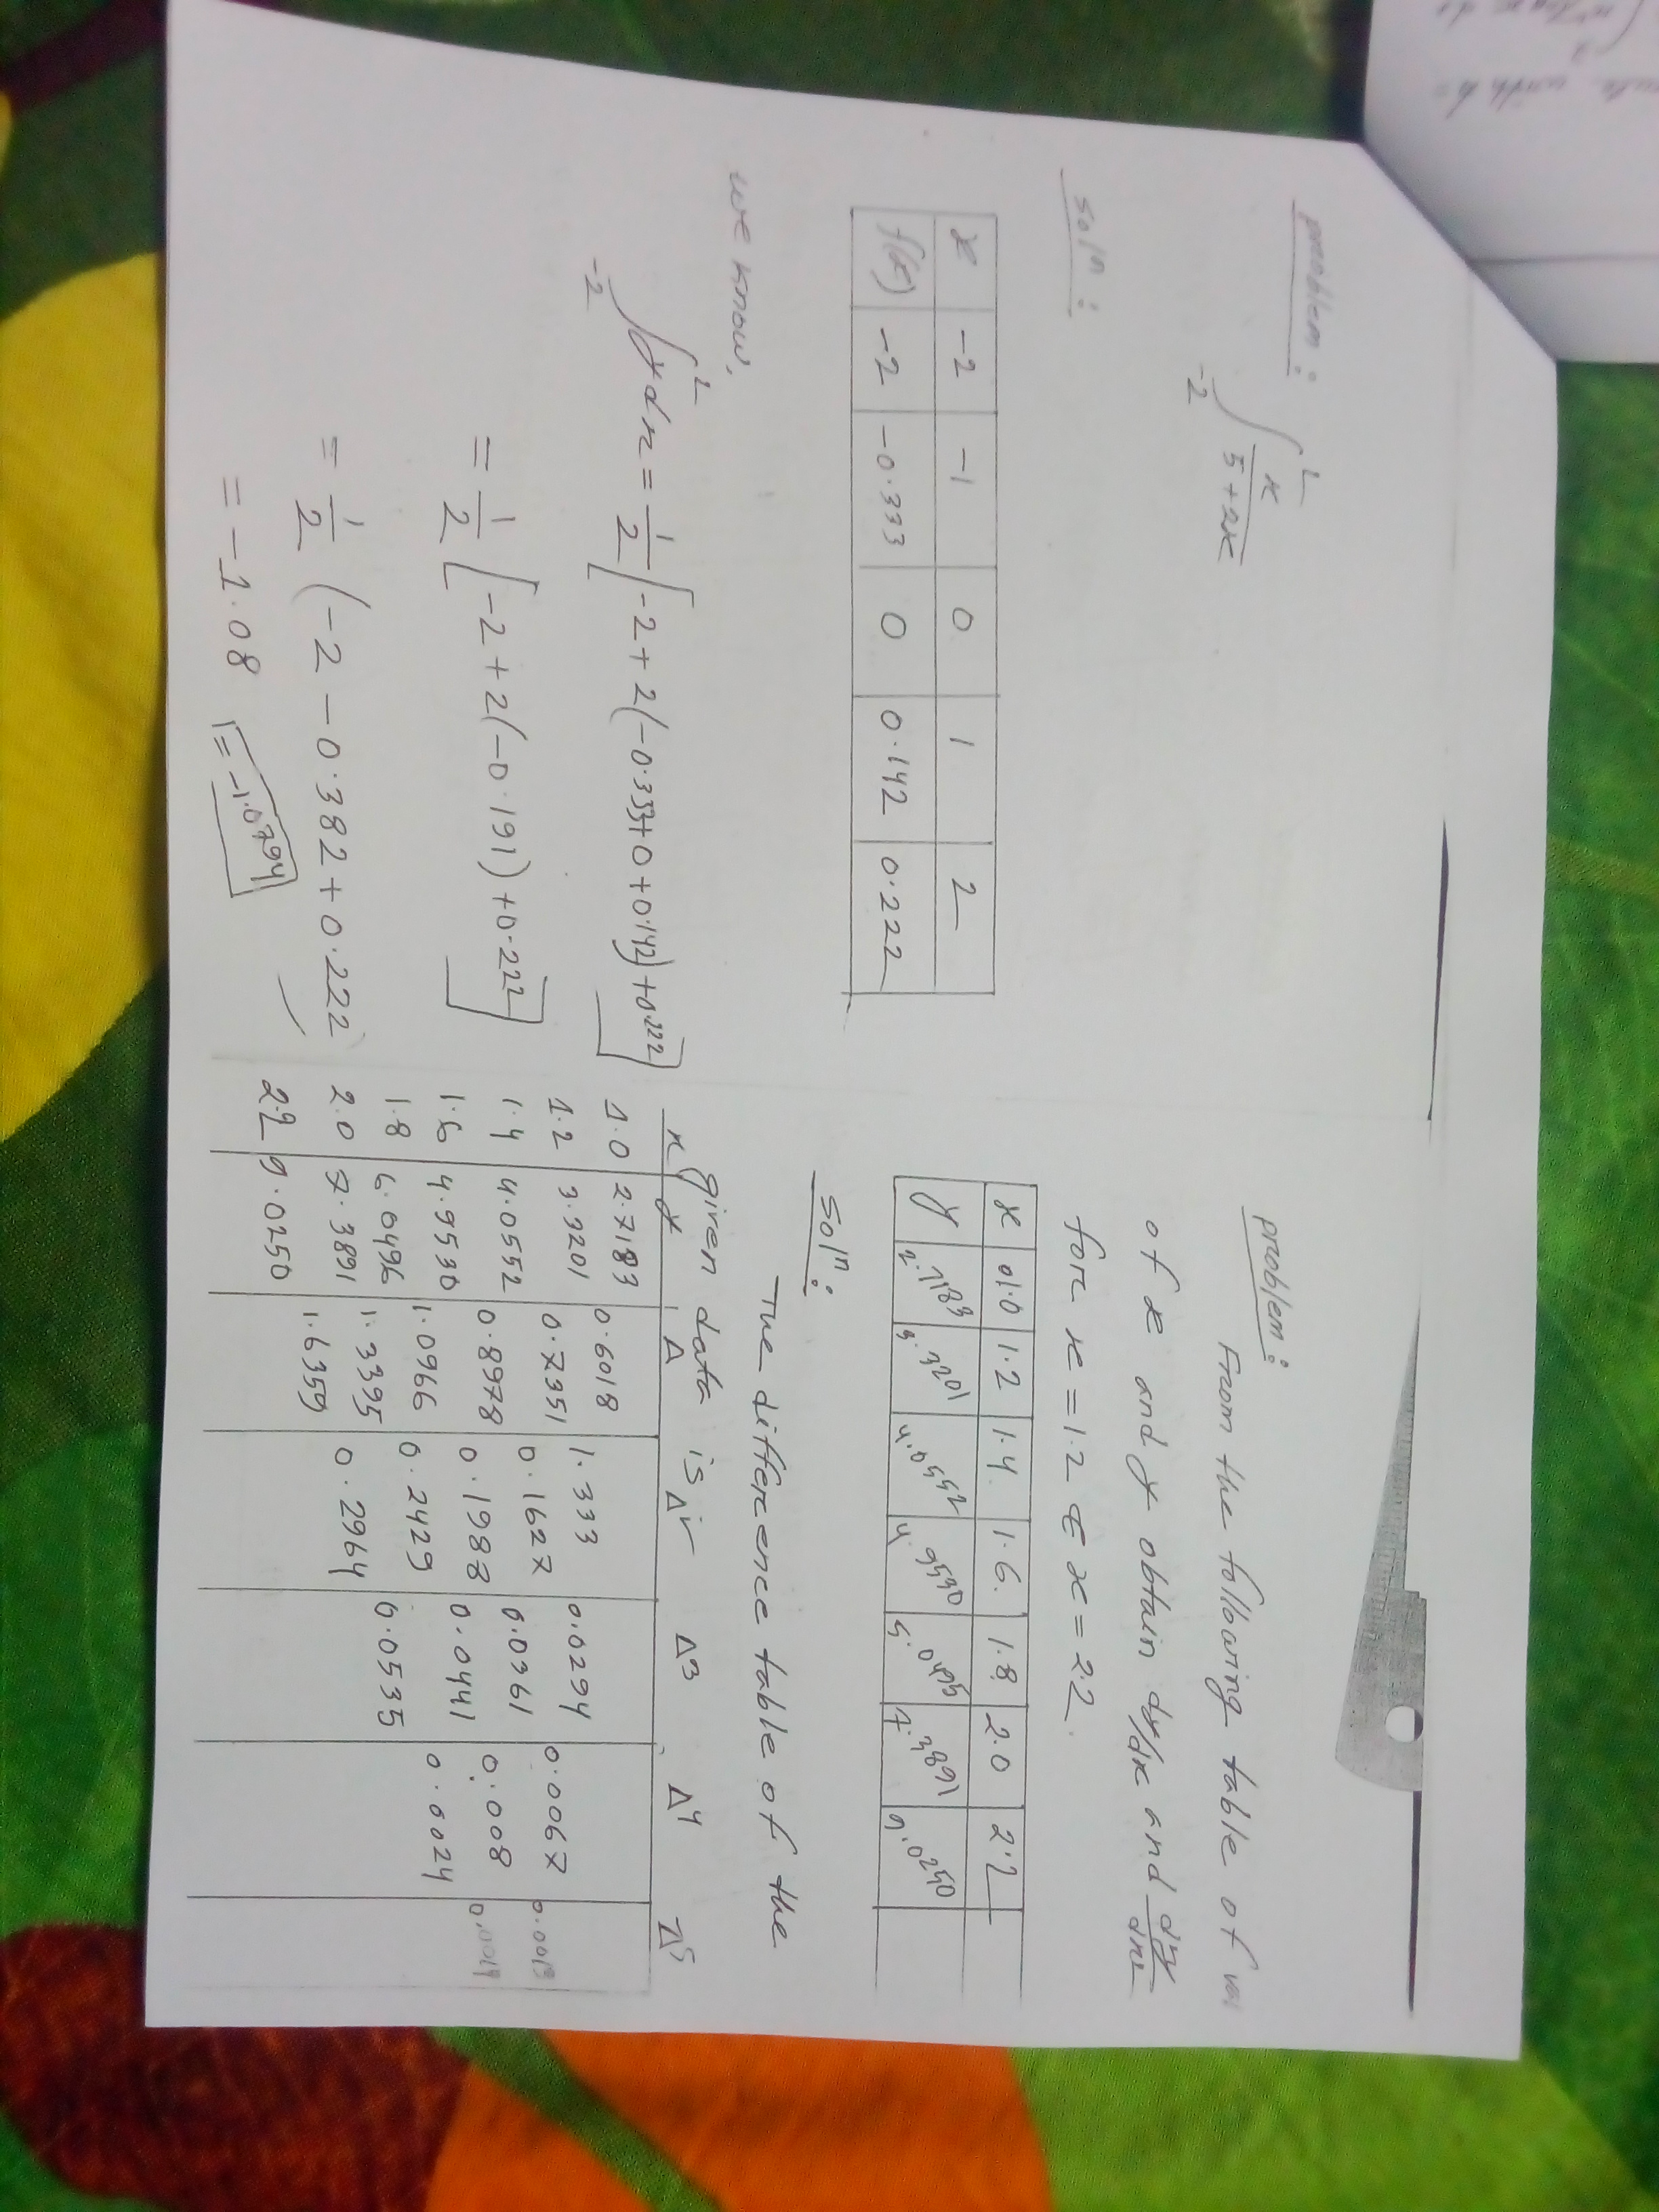 problem:
∫ -2 2 x / 5+2x
solⁿ:
x -2 -1 0 1 2
f(x) -2 -0.333 0 0.142 0.222
we know,
∫ -2 2 ydx = 1/2 [-2+2(-0.333+0+0.142)+0.222]
= 1/2 [-2+2(-0.191)+0.222]
= 1/2 (-2-0.382+0.222
= -1.08 = -1.0794
problem:
From the following table of
of x and y obtain dy/dx and d²y/dx²
for x = 1.2 & x = 2.2.
x 1.0 1.2 1.4 1.6. 1.8 2.0 2.2
y 2.7183 3.3201 4.0552 4.9530 5.0495 7.3891 9.0250
solⁿ:
The difference table of the
given data is
x y Δ Δ² Δ3 Δ4 Δ5
1.0 2.7183
0.6018
1.2 3.3201 1.333
0.7351 0.0294
1.4 4.0552 0.1627 0.0067
0.8978 0.0361 0.0013
1.6 4.9530 0.1988 0.008
1.0966 0.0441 0.0014
1.8 6.0496 0.2429 0.0024
1.3395 0.0535
2.0 7.3891 0.2964
1.6359
2.2 9.0250